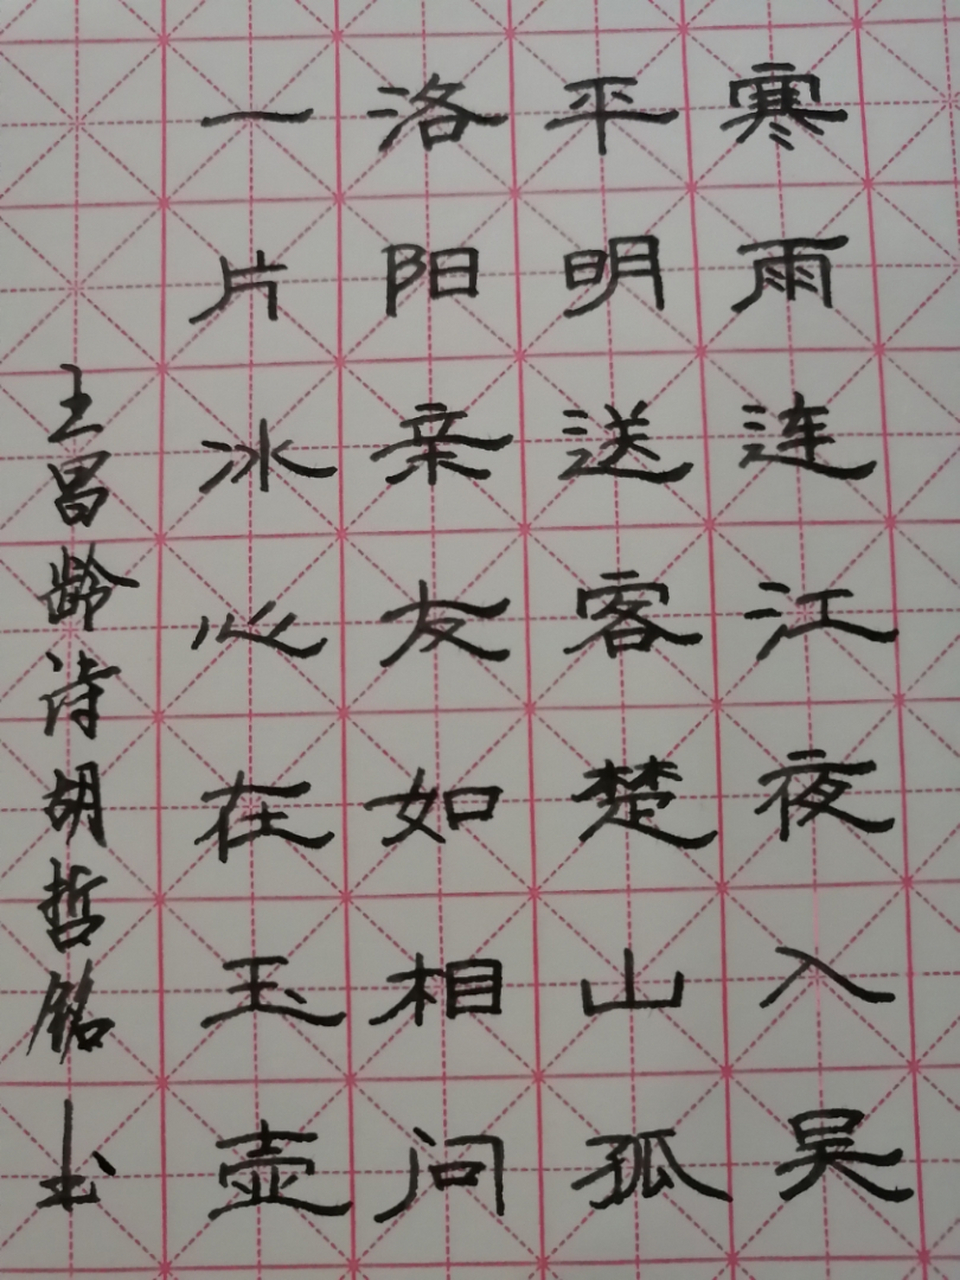 寒雨连江夜入吴
平明送客楚山孤
洛阳亲友如相问
一片冰心在玉壶
王昌龄诗胡哲铭书